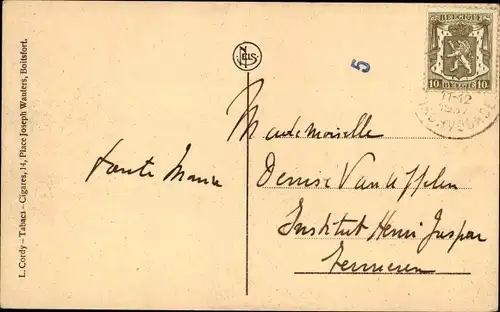 L. Cordy - Tabacs - Cigares, 14, Place Joseph Wauters, Boitsfort.
NELS
5
BELGIQUE
10 10
BELGIE
11-12
Mademoiselle
Denise
Institut Henri Jaspar
tante Maria